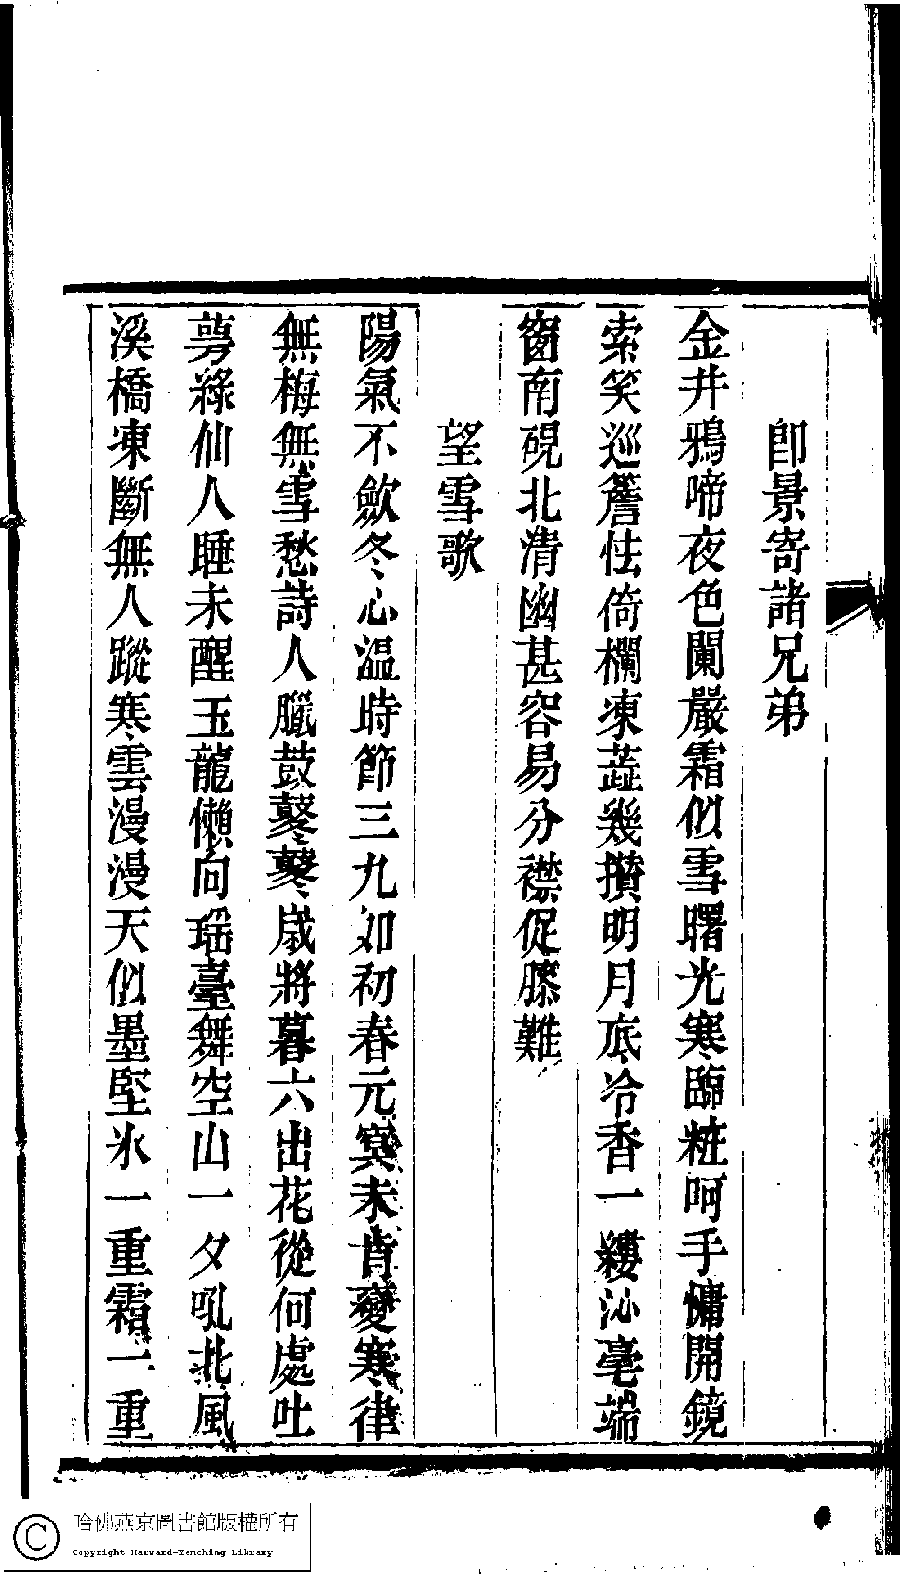 卽景寄諸兄弟
金井鴉啼夜色闌嚴霜似雪曙光寒臨粧呵手慵開鏡
索笑巡簷怯倚欄凍蕋幾攢明月底冷香一縷沁毫端
窗南硯北清幽甚容易分襟促膝難
望雪歌
陽氣不歛冬心溫時節三九如初春元冥未肯變寒律
無梅無雪愁詩人臘鼓鼕鼕歲將暮六出花從何處吐
萼綠仙人睡未醒玉龍懶向瑤臺舞空山一夕吼北風
溪橋凍斷無人蹤寒雲漫漫天似墨堅氷一重霜一重
哈佛燕京圖書館版權所有
Copyright Harvard-Yenching Library